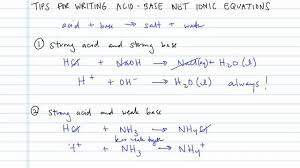 TIPS FOR WRITING ACID-BASE NET IONIC EQUATIONS
acid + base → salt + water
① strong acid and strong base
HCl + NaOH → NaCl(aq) + H₂O(l)
H⁺ + OH⁻ → H₂O(l) always!
② strong acid and weak base
HCl + NH₃ → NH₄Cl
H⁺ + NH₃ → NH₄⁺